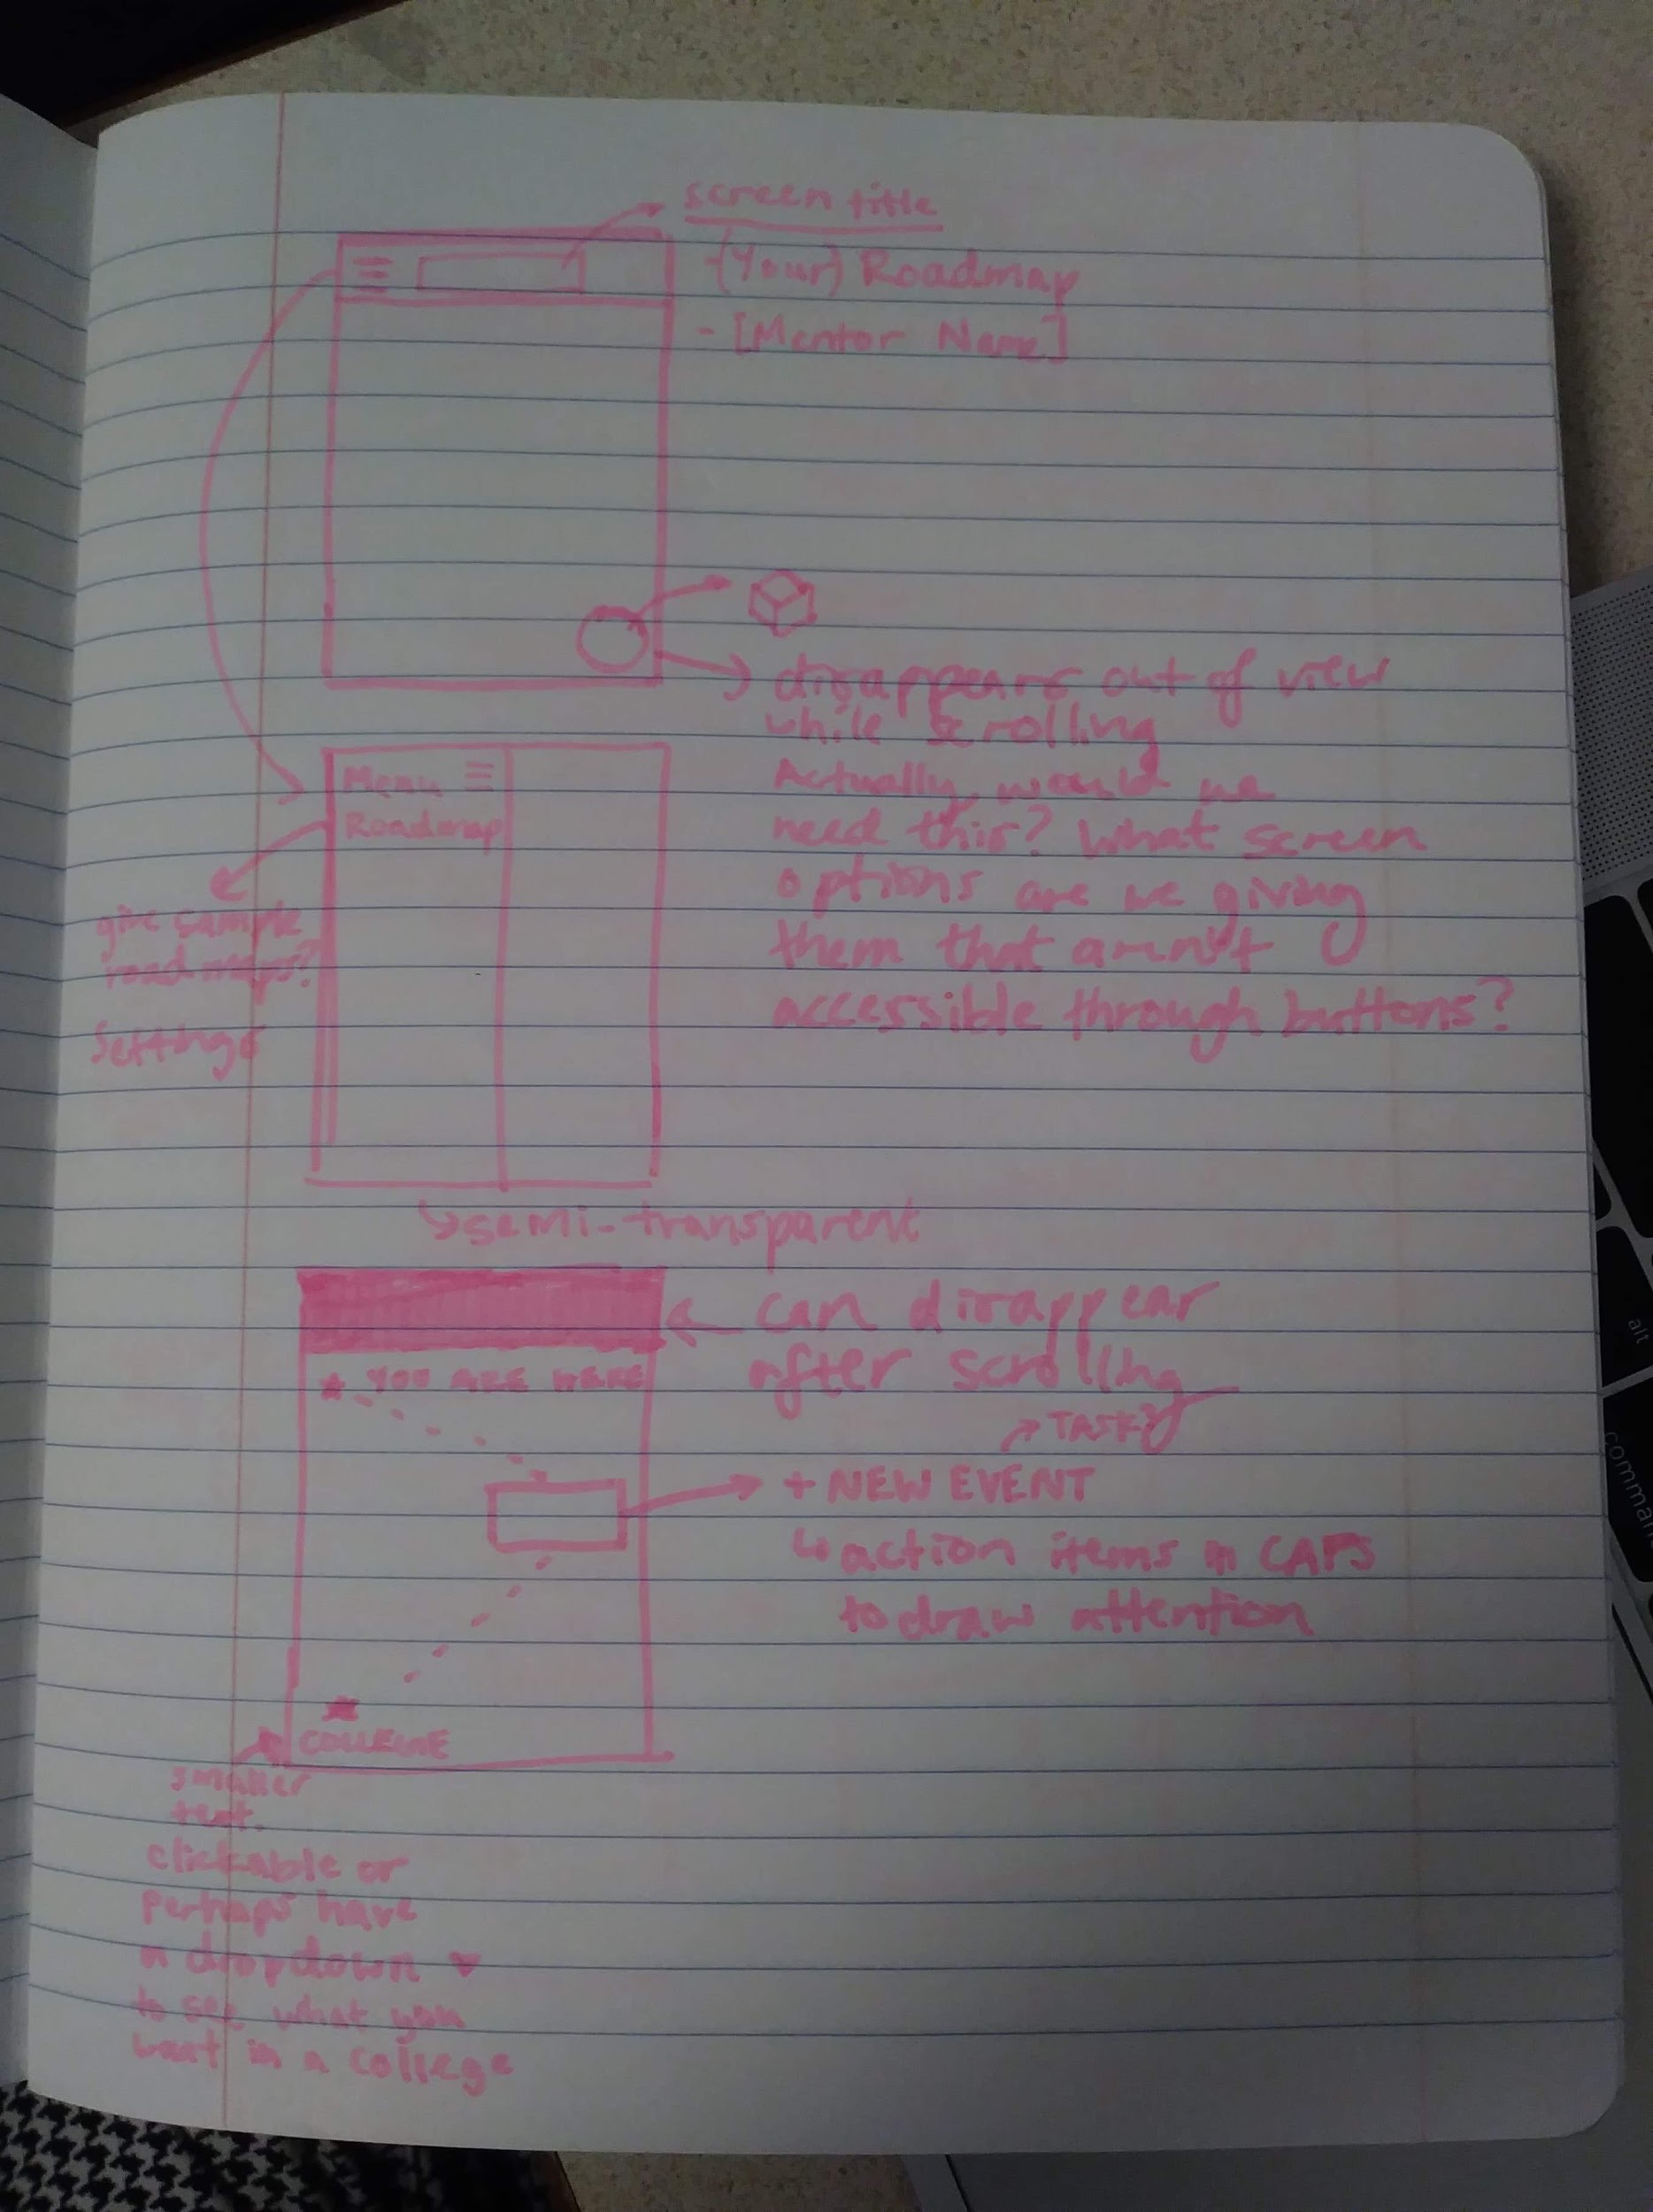 screen title
-(Your) Roadmap
- [Mentor Name]
disappears out of view
while scrolling
Actually, would we
need this? What screen
options are we giving
them that aren't
accessible through buttons?
Menu
Roadmap
give sample
roadmaps?
Settings
semi-transparent
can disappear
after scrolling
YOU ARE HERE
TASK?
+ NEW EVENT
action items in CAPS
to draw attention
COLLEGE
smaller
text.
clickable or
perhaps have
a dropdown
to see what you
want in a college
alt
command